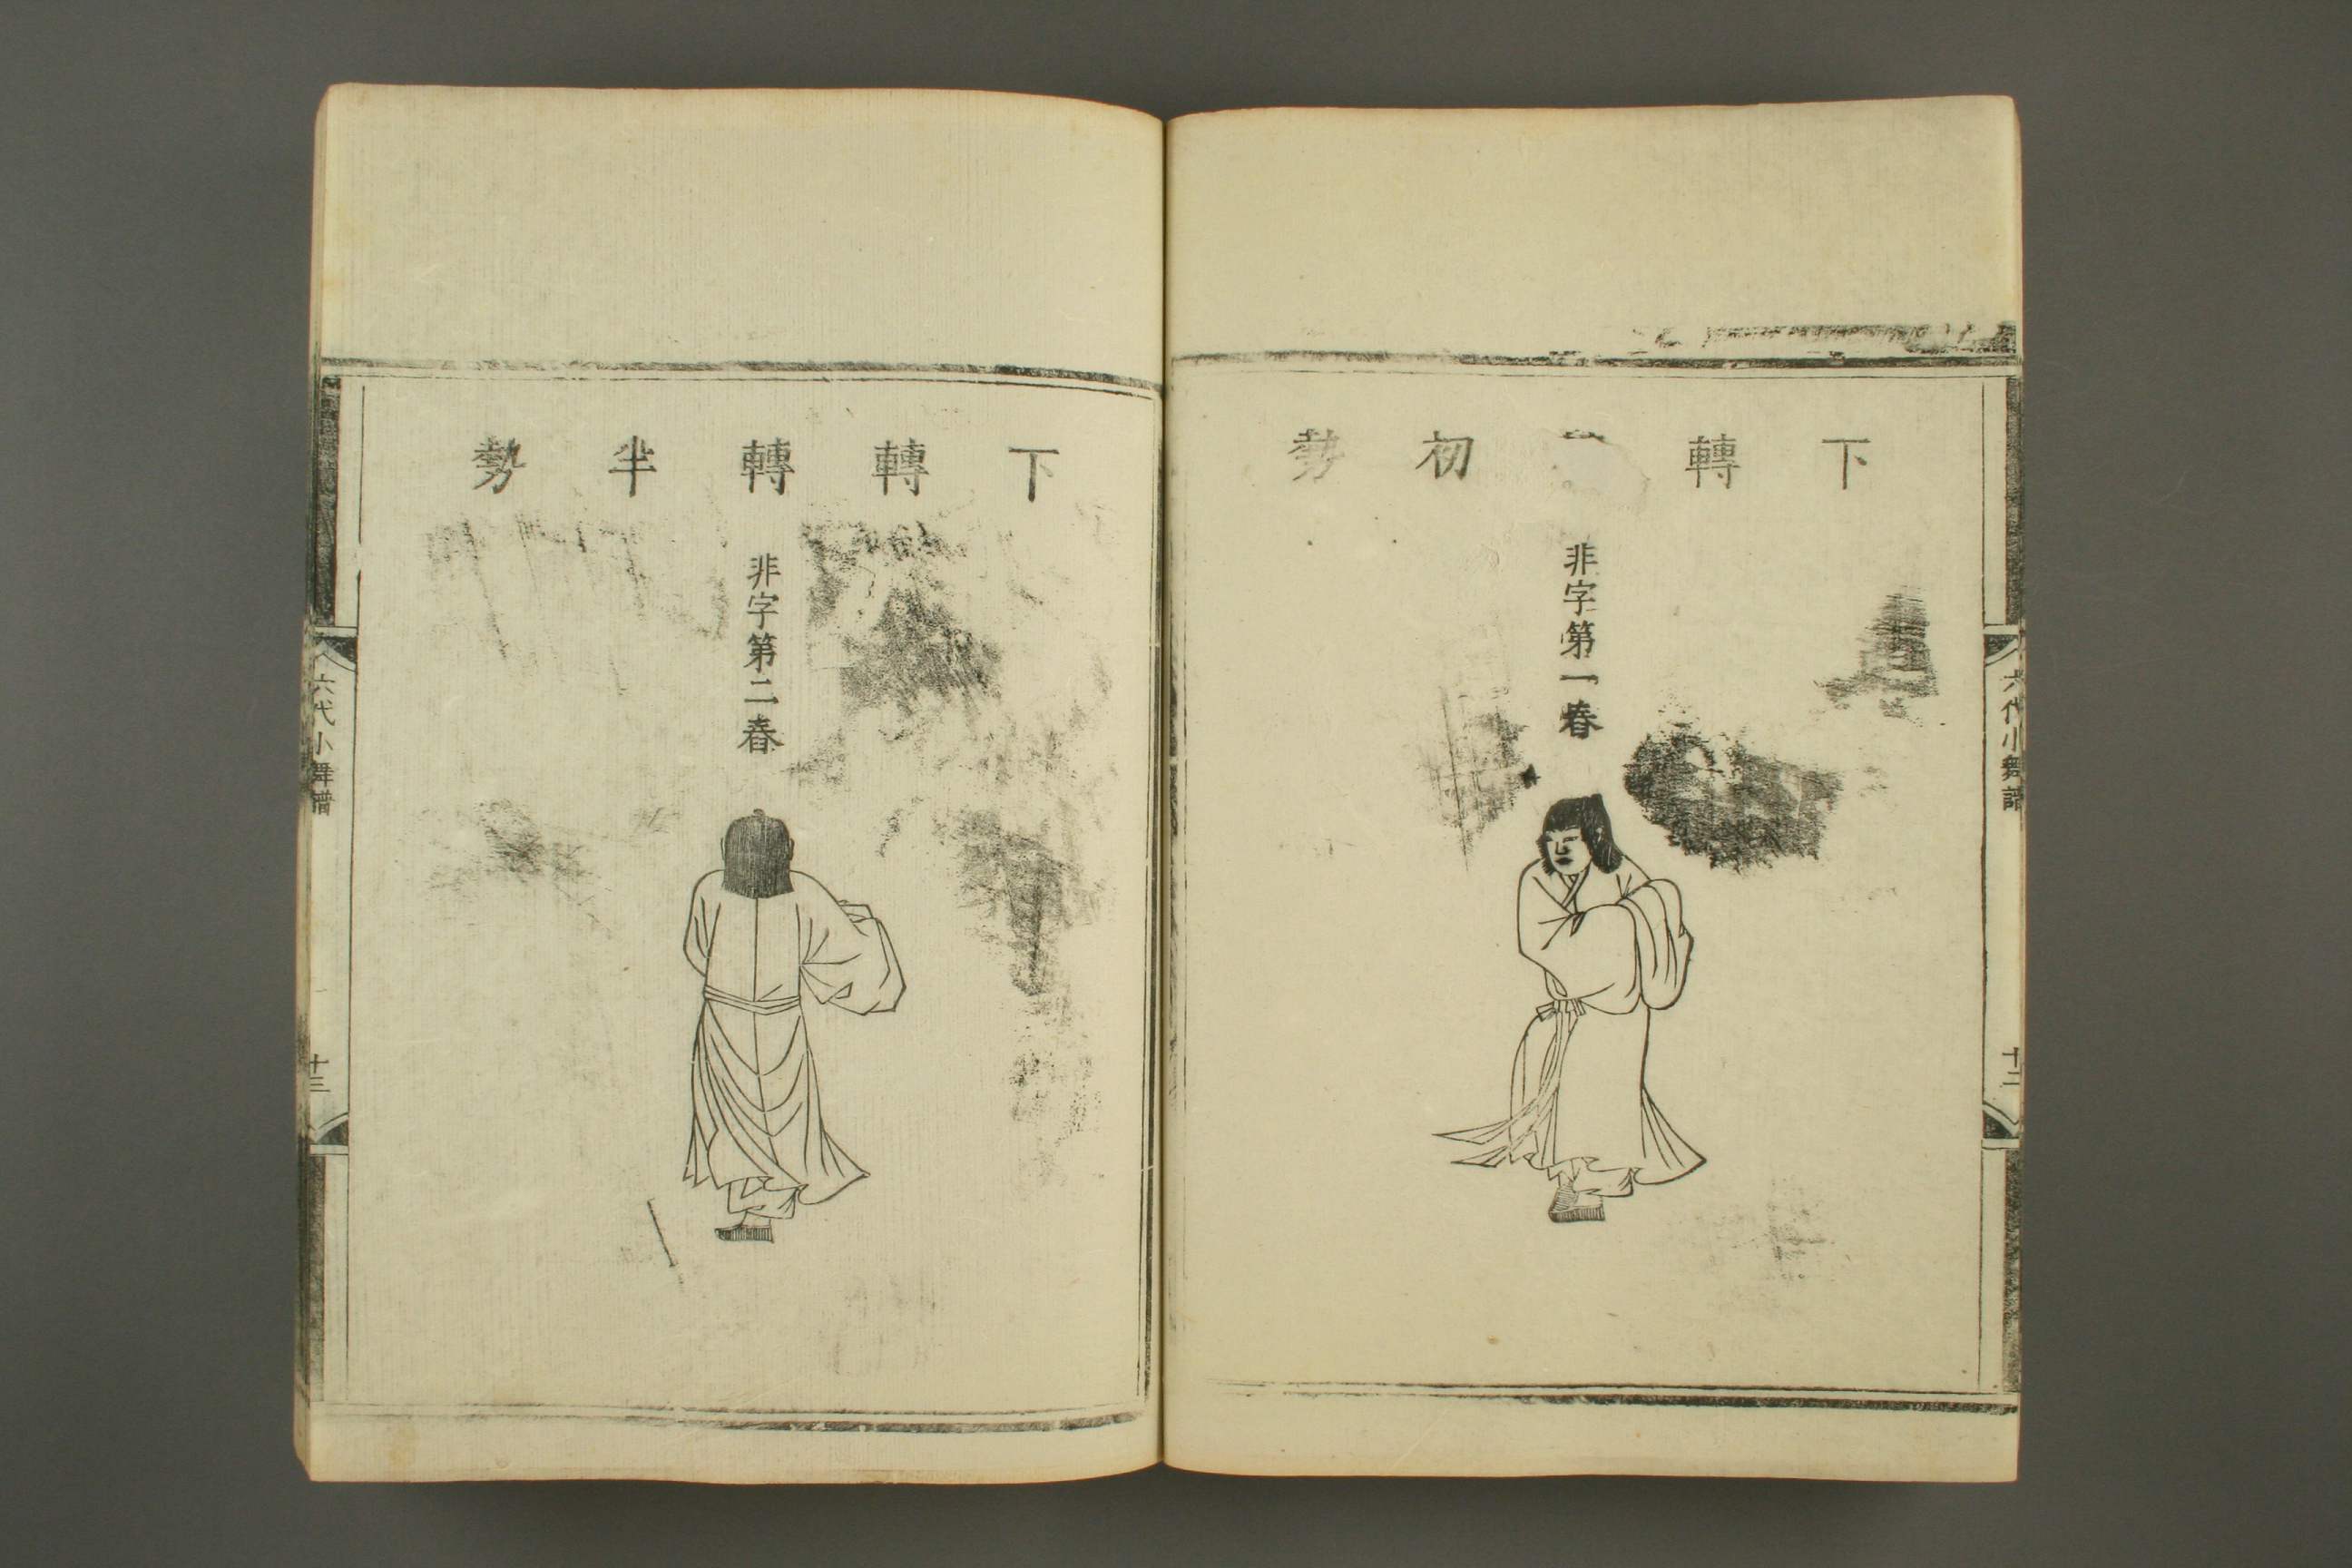 下轉初勢
非字第一舂
六代小舞譜 十二
下轉轉半勢
非字第二舂
六代小舞譜 十三